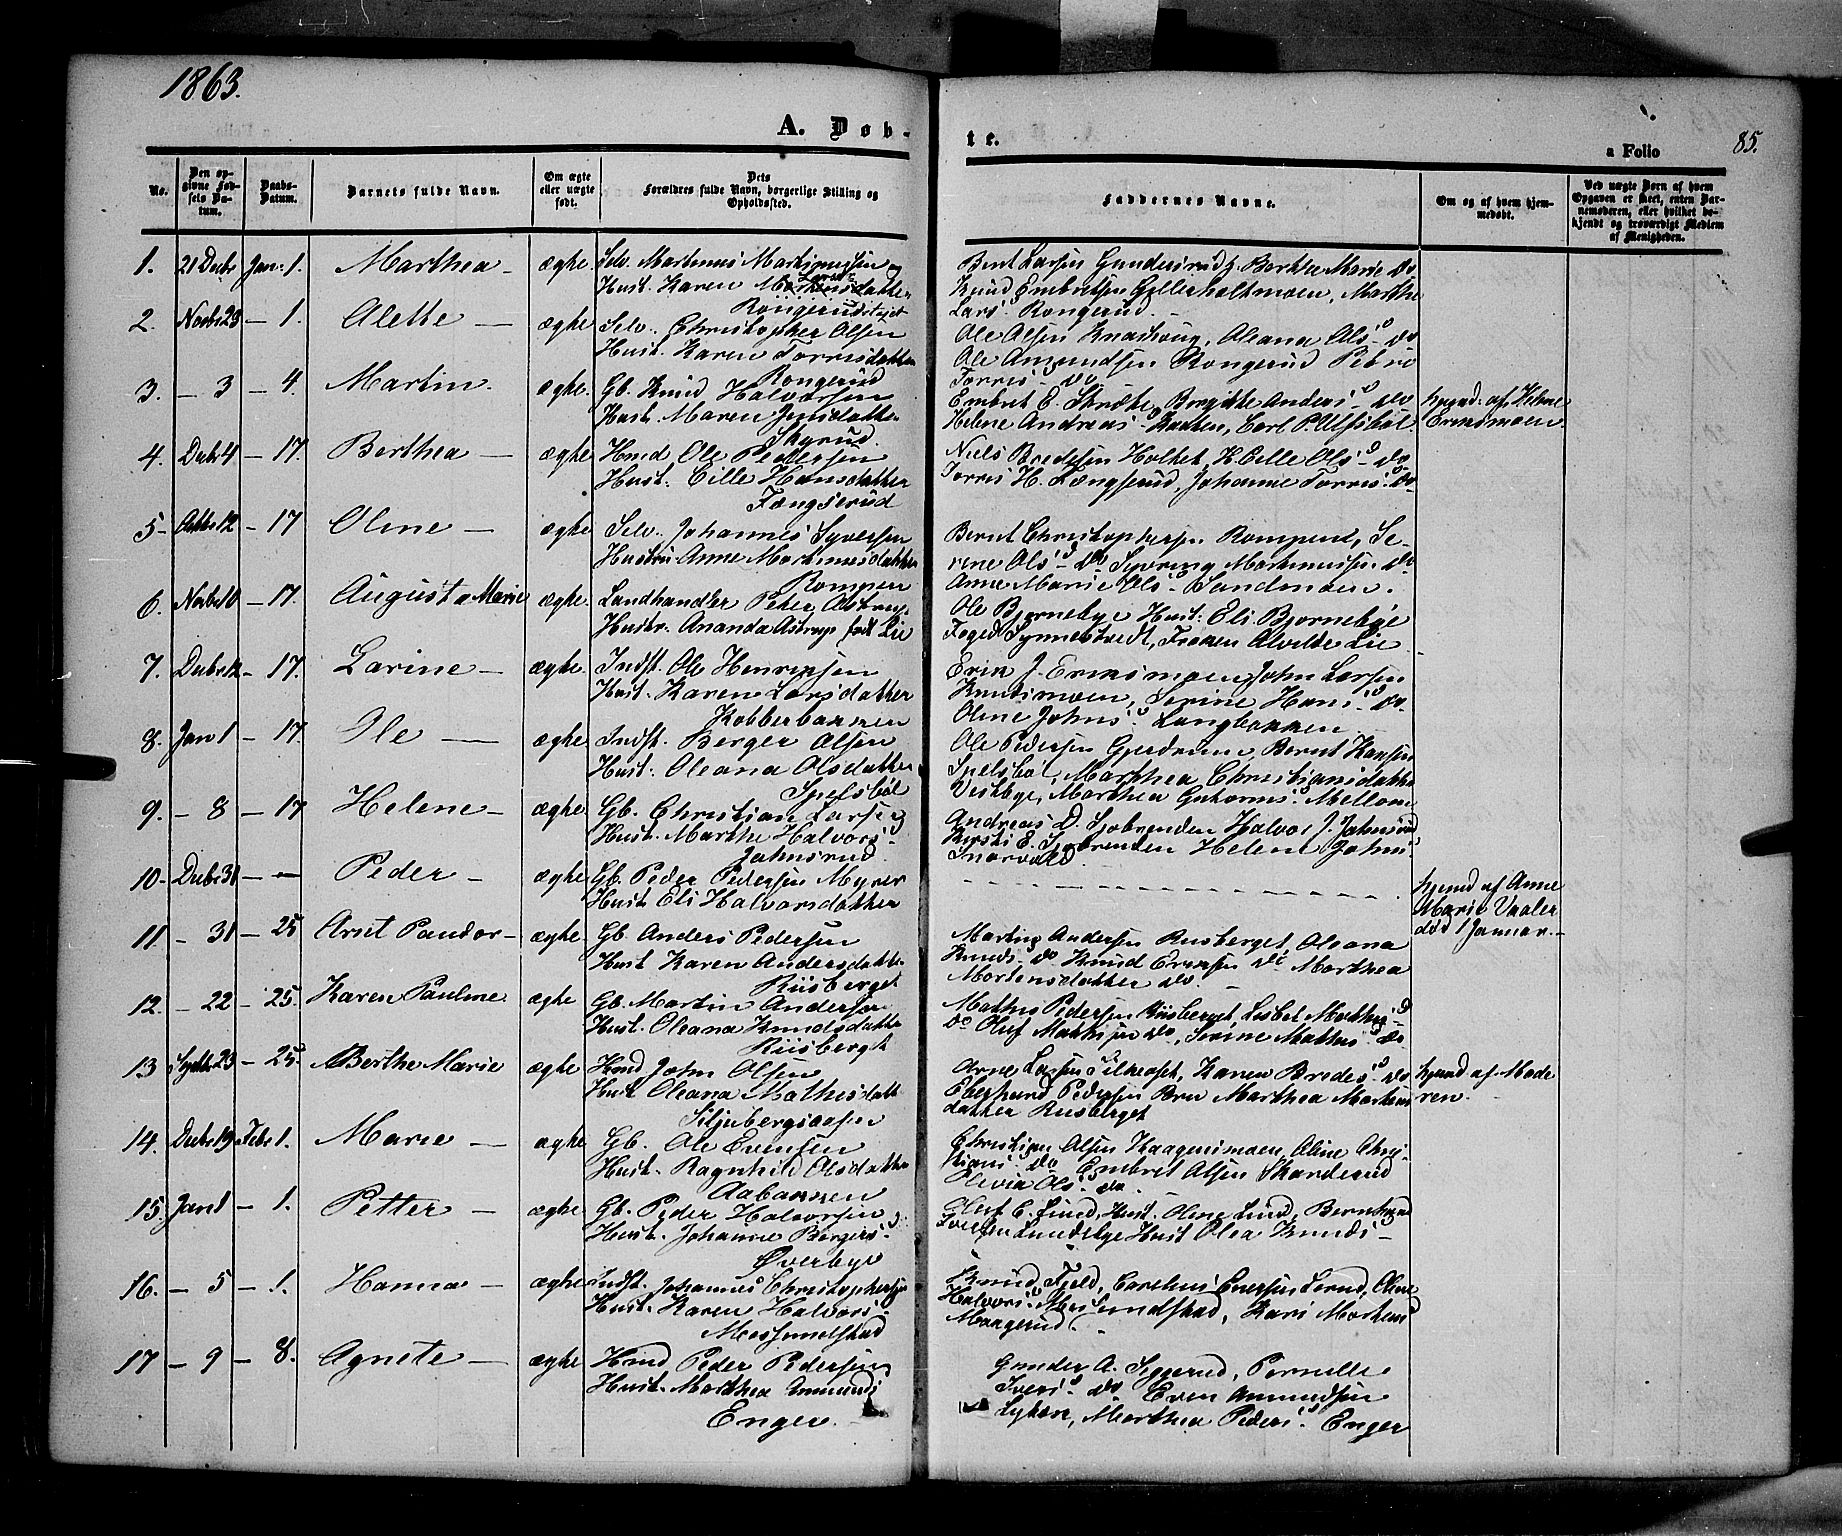 1863.
A. Døb-
te.
a Folio
85.
No.
Den op-
givne Fød-
sels Da-
tum.
Daabs-
Datum.
Barnets fulde Navn.
Om ægte
eller uægte
født.
Dets
Forældres fulde Navn, borgerlige Stilling og
Opholdssted.
Faddernes Navne.
Om og af hvem hjem-
medøbt.
Ved uægte Børn af hvem
Opgaven er skeet, enten Bar-
nemoderen, eller hvilket be-
kjendt og troværdigt Medlem
af Menigheden.
1. 21 Decbr Jan. 1. Marthea - ægte Selv. Martinus Martinussen
Hust. Karen Larsdatter
Rongerudeiet
Bent Larsen Gundersrud, Berthe Marie do
Knud Embretsen Gullerholtmoen, Marthe
Lars. Rongerud.
2. Novbr 23 - 1. Alette - ægte Selv. Christopher Olsen
Hust. Karen Torrisdatter
Rongerud
Ole Olsen Knashoug, Oleana Ols. do
Ole Amundsen Rongerud Petrine
Torris. do
3. - 3 - 4 Martin. ægte. Gb. Knud Halvorsen
Hust. Maren Jensdatter
Skyrud.
Embret E. Skræke, Birgitte Anders. do
Helene Andreas. Karl P. Ulfsbøl.
hjemd. af Helene
Ermesmoen
4. Decbr 4 - 17. Berthea - ægte Hmd Ole Pedersen
Hust. Cille Hansdatter
Fængserud
Niels Bredesen Holtet, K. Cille Ols. do
Torris H. Fængserud, Johanne Torris. do
5. Octbr 12 - 17 Oline - ægte Selv. Johannes Syversen
Hustru Anne Martinusdatter
Rompen
Bernt Christophersen Rompen, Se-
rine Ols. do Syvring Martinussen do
Anne Marie Ols. Sandmoen.
6. Novbr 10 - 17. Augusta Marie ægte. Landhandler Peter Astrup
Hustr. Ananda Astrup født Lie
Ole Bjørneby Hust. Eli Bjørneby
Foged Synnestvedt, Frøken Alvilde Lie
7. Decbr 12 - 17. Larine - ægte. Indst. Ole Henriksen
Hust. Karen Larsdatter
Kobberbakken
Erik J. Ermesmoen, John Larsen
Knudsmoen, Serine Hans. do
Oline Johns. Langbakken
8. Jan 1 - 17. Ole - ægte Indst. Berger Olsen
Hust. Oleana Olsdatter
Spelsbøl
Ole Pedersen Gjerdrum, Bernt Hansen
Spelsbøl, Marthea Christiansdatter
Vestbye, Marthea Guttorms. Mellom
9. - 8 - 17 Helene - ægte. Gb. Christian Larsen
Hust. Marthe Halvors.
Johnsrud
Andreas D. Sjøbrenden Halvor J. Johnsrud
Kirsti E. Sjøbrenden Helene Johns.
Snarvold
10. Decbr 31 - - Peder - ægte Gb. Peder Pedersen Myrer
Hust Eli Halvorsdatter
hjemd af Anne
Marie Vaaler
død 1 Januar.
11 - 31 - 25 Arnt Pauder - ægte. Gb. Anders Pedersen
Hust Karen Andersdatter
Riisberget
Martin Andersen Riisberget Oleana
Knuds. do Knud Eriksen do Marthea
Mortensdatter do.
12. - 22 - 25. Karen Pauline ægte Gb. Martin Andersen
Hust. Oleana Knudsdatter
Riisberget
Mathis Pedersen Riisberget, Lisbet Mathis.
do Oluf Mathisen do, Serine Mathis. do
13 Septbr 23 - 25. Berthe Marie ægte Hmd John Olsen
Hust Oleana Mathisdatt
Siljubergsaasen
Arne Larsen Silkeaset, Karen Bredes. do
Marthea Mortens
datter Riisberget
hjemd af Mode
ren.
14. Decbr 19 Febr 1. Marie - ægte Gb. Ole Evensen
Hust. Ragnhild Olsdatter
Aabakken
Christian Olsen Haagensmoen, Oline Chri-
stians. do Embret Olsen Skanderud
Olivia Ols. do
15. Jan 1 - 1. Petter - ægte Gb. Peder Halvorsen
Hust. Johanne Bergers.
Øverbye
Oluf E. Lund, Hust. Oline Lund, Bernt
Iversen Lundebye Hust Olea Knuds -
16. - 5 - 1. Hanna - ægte Indst. Johannes Christophersen
Hust. Karen Halvors.
Mosgundstad
Knud Fjeld, Carelius Eversen Lerud, Oline
Halvors. Kari Mortens
Maagerud
17 - 9 - 8. Agnete - ægte Hmd Peder Pedersen
Hust. Marthea Amunds
Enger.
Gunder A. Siggerud, Pernelle
Ivers. do Even Amundsen
Lykken, Marthea Peders. Enger